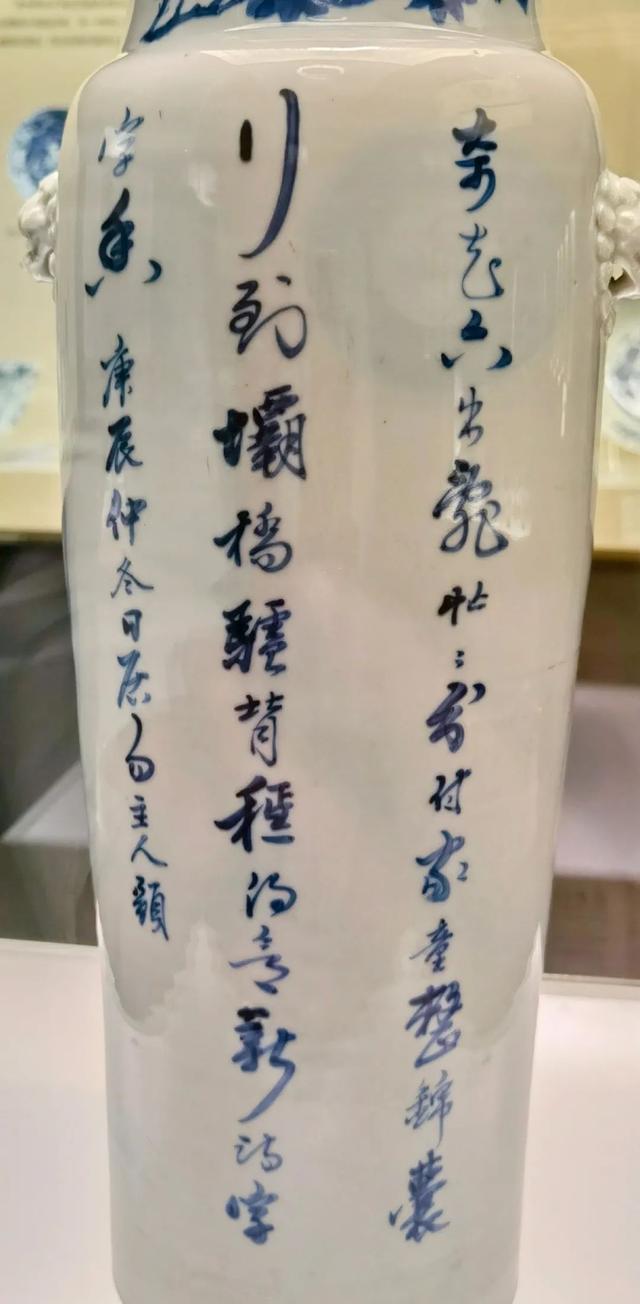 奇花六出亂忙忙分付家童整錦囊
行到壩橋驢背穩得意新詩字
字香 庚辰仲冬日居主人題